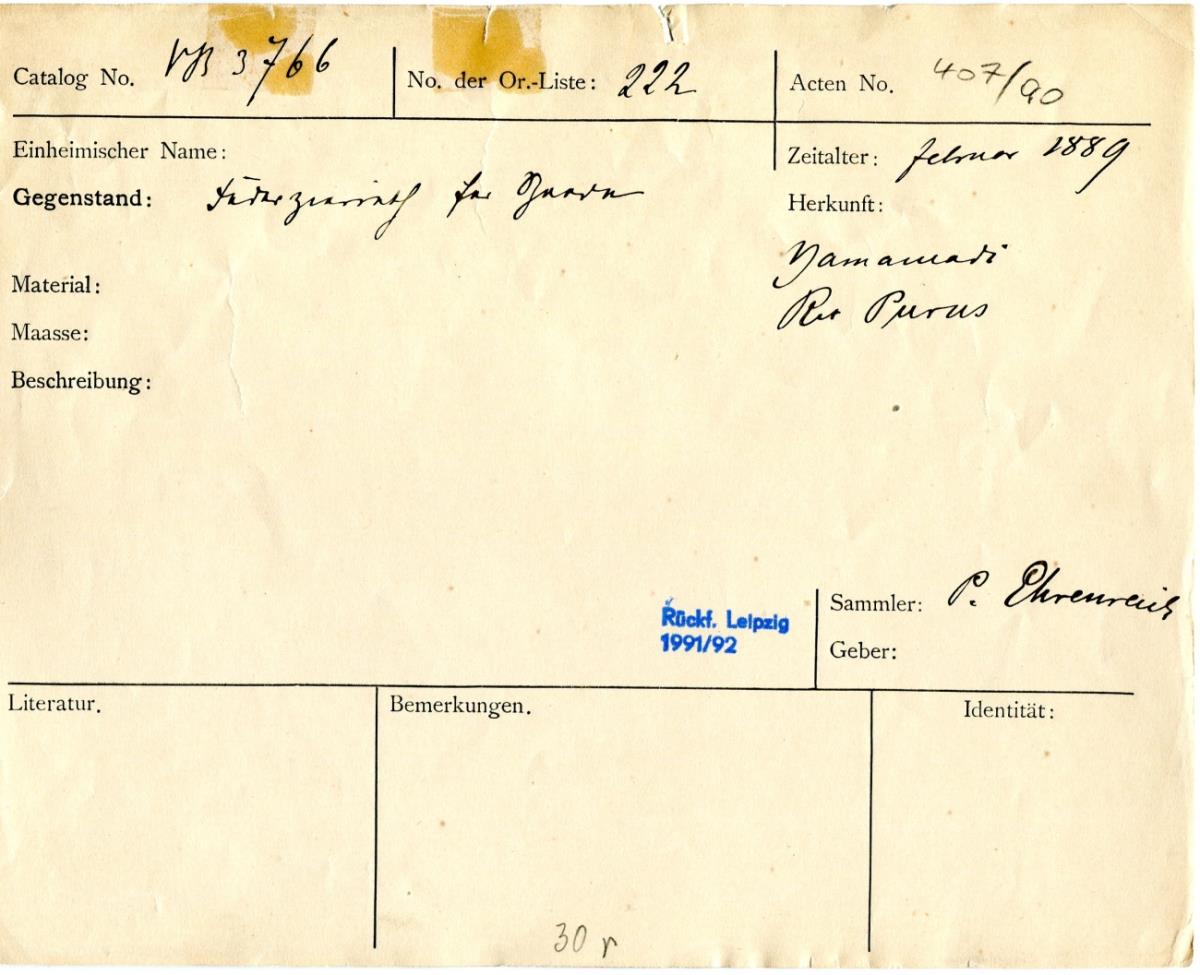 Catalog No. VB 3766
No. der Or.-Liste: 222
Acten No. 407/90
Einheimischer Name:
Zeitalter: Februar 1889
Gegenstand: Federzierrath für
Herkunft:
Yamamadi
Rio Purus
Material:
Maasse:
Beschreibung:
Rückf. Leipzig
1991/92
Sammler: P. Ehrenreich
Geber:
Literatur.
Bemerkungen.
Identität:
30 r